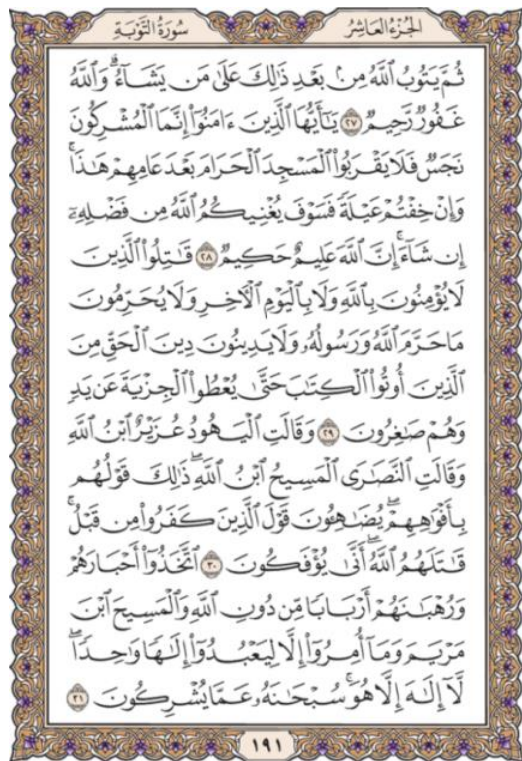 الجزء العاشر
سورة التوبة
ثُمَّ يَتُوبُ ٱللَّهُ مِنۢ بَعْدِ ذَٰلِكَ عَلَىٰ مَن يَشَآءُۗ وَٱللَّهُ
غَفُورٞ رَّحِيمٞ ٢٧ يَٰٓأَيُّهَا ٱلَّذِينَ ءَامَنُوٓاْ إِنَّمَا ٱلْمُشْرِكُونَ
نَجَسٞ فَلَا يَقْرَبُواْ ٱلْمَسْجِدَ ٱلْحَرَامَ بَعْدَ عَامِهِمْ هَٰذَاۚ
وَإِنْ خِفْتُمْ عَيْلَةٗ فَسَوْفَ يُغْنِيكُمُ ٱللَّهُ مِن فَضْلِهِۦٓ
إِن شَآءَۚ إِنَّ ٱللَّهَ عَلِيمٌ حَكِيمٞ ٢٨ قَٰتِلُواْ ٱلَّذِينَ
لَا يُؤْمِنُونَ بِٱللَّهِ وَلَا بِٱلْيَوْمِ ٱلْأٓخِرِ وَلَا يُحَرِّمُونَ
مَا حَرَّمَ ٱللَّهُ وَرَسُولُهُۥ وَلَا يَدِينُونَ دِينَ ٱلْحَقِّ مِنَ
ٱلَّذِينَ أُوتُواْ ٱلْكِتَٰبَ حَتَّىٰ يُعْطُواْ ٱلْجِزْيَةَ عَن يَدٖ
وَهُمْ صَٰغِرُونَ ٢٩ وَقَالَتِ ٱلْيَهُودُ عُزَيْرٌ ٱبْنُ ٱللَّهِ
وَقَالَتِ ٱلنَّصَٰرَى ٱلْمَسِيحُ ٱبْنُ ٱللَّهِۖ ذَٰلِكَ قَوْلُهُم
بِأَفْوَٰهِهِمْۖ يُضَٰهِـُٔونَ قَوْلَ ٱلَّذِينَ كَفَرُواْ مِن قَبْلُۚ
قَٰتَلَهُمُ ٱللَّهُۖ أَنَّىٰ يُؤْفَكُونَ ٣٠ ٱتَّخَذُوٓاْ أَحْبَارَهُمْ
وَرُهْبَٰنَهُمْ أَرْبَابٗا مِّن دُونِ ٱللَّهِ وَٱلْمَسِيحَ ٱبْنَ
مَرْيَمَ وَمَآ أُمِرُوٓاْ إِلَّا لِيَعْبُدُوٓاْ إِلَٰهٗا وَٰحِدٗاۖ
لَّآ إِلَٰهَ إِلَّا هُوَۚ سُبْحَٰنَهُۥ عَمَّا يُشْرِكُونَ ٣١
١٩١